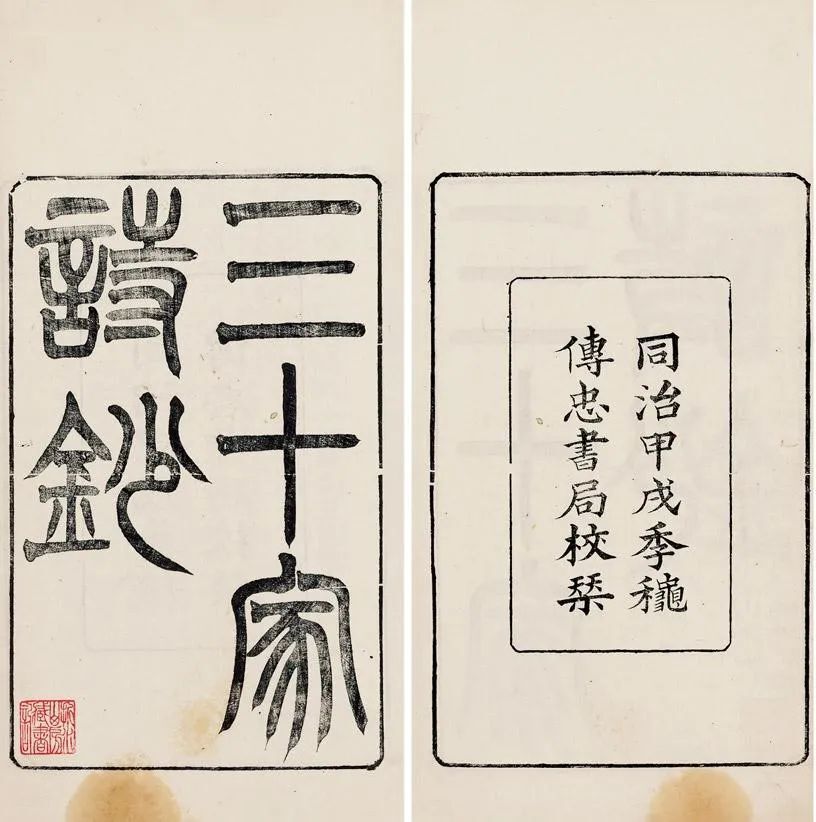 三十家
詩鈔
同治甲戌季龝
傳忠書局校栞